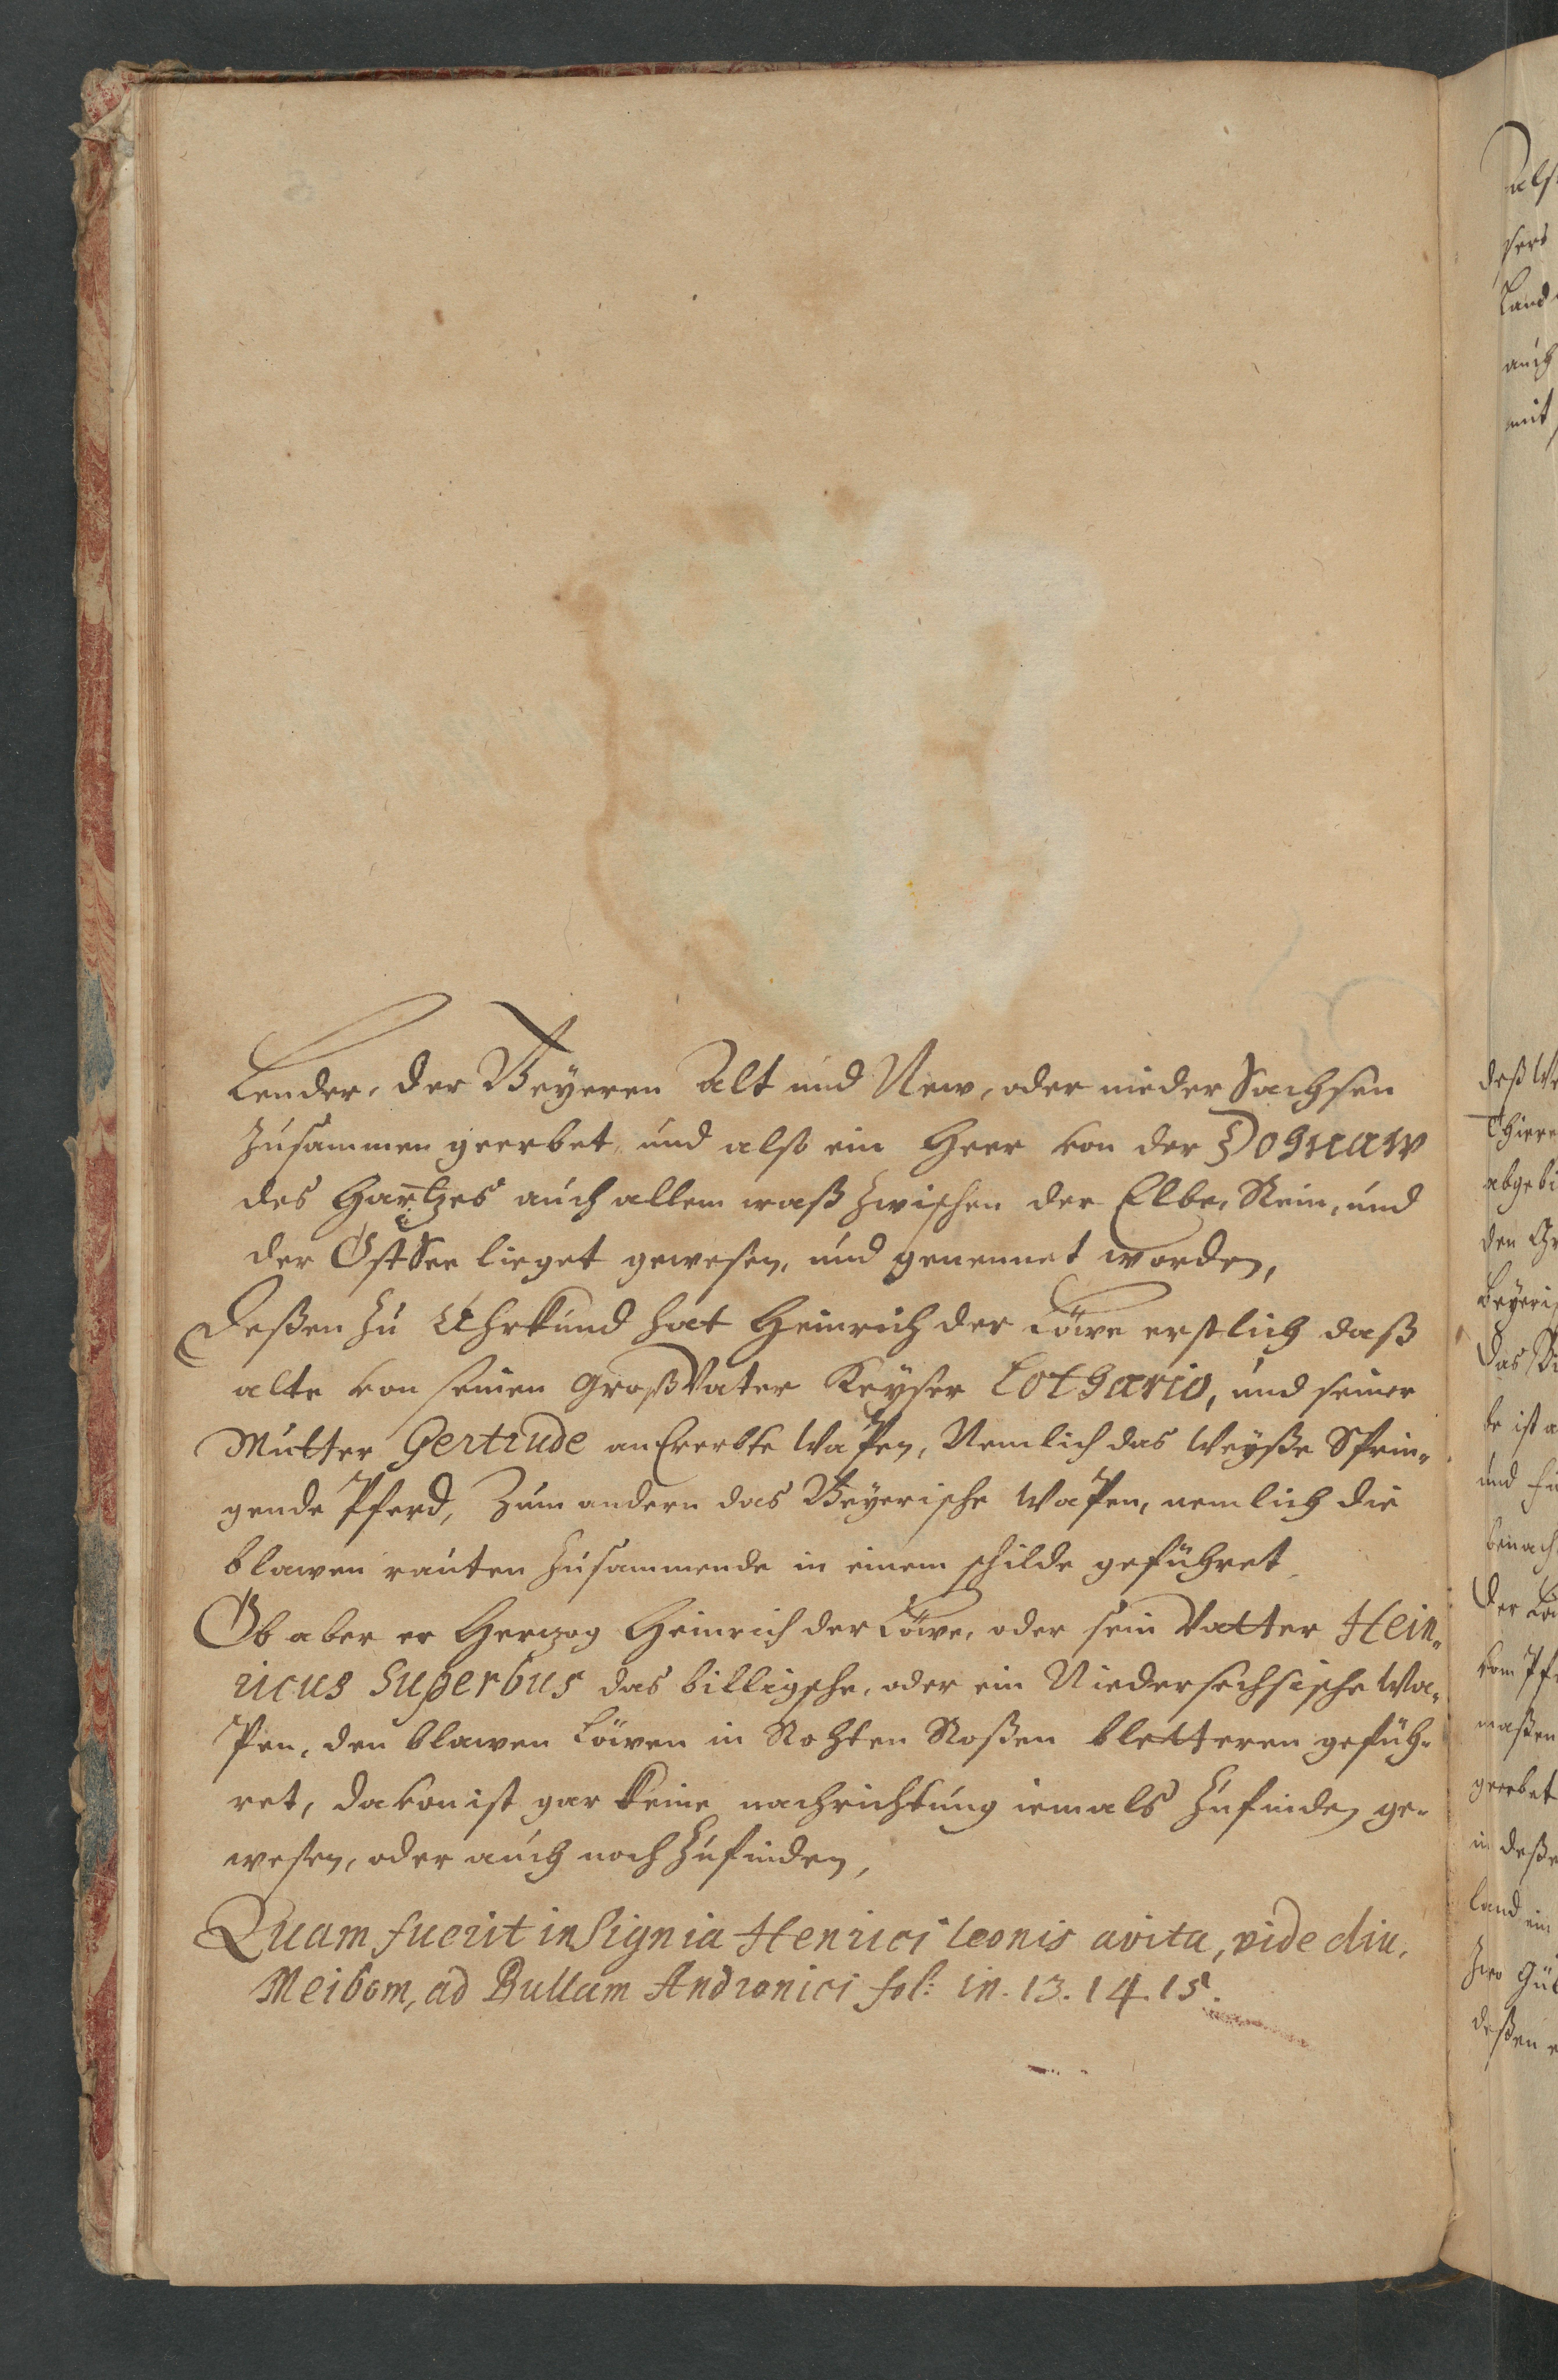 Lender, der Beyeren Alt und New, oder nieder Sachsen
zusammen geerbet, und also ein Herr von der Donaw
des Hartzes auch allem waß zwischen der Elbe, Rein, und
der OstSee lieget gewesen, und genennet worden,
Deßen zu Uhrkund hat Heinrich der Löwe erstlich daß
alte von seinen GroßVater Keyser Lothario, und seiner
Mutter Gertrude anErerbte Wapen, Nemlich das Weyße Sprin-
gende Pferd, Zum andern das Beyerische Wapen, nemlich die
blawen rauten zusammende in einem schilde geführet
Ob aber er Herzog Heinrich der Löwe, oder sein Vatter Hein-
ricus Superbus das billigsche, oder ein Niedersechsische Wa-
Pen, den blawen Löwen in Rohten Roßen bletteren gefüh-
ret, davon ist gar keine nachrichtung iemals zufinden ge-
wesen, oder auch noch zufinden,
Quam fuerit insignia Henrici Leonis avita, vide diu.
Meibom, ad Bullam Andronici fol: in. 13. 14. 15.
als
Land
auch
mit
deß We
Thiere
abgebi
den
Beyeri
das
be ist a
und
benach
der Lö
vom Pfe
maßen
geerbet
in deße
land ein
deßen e